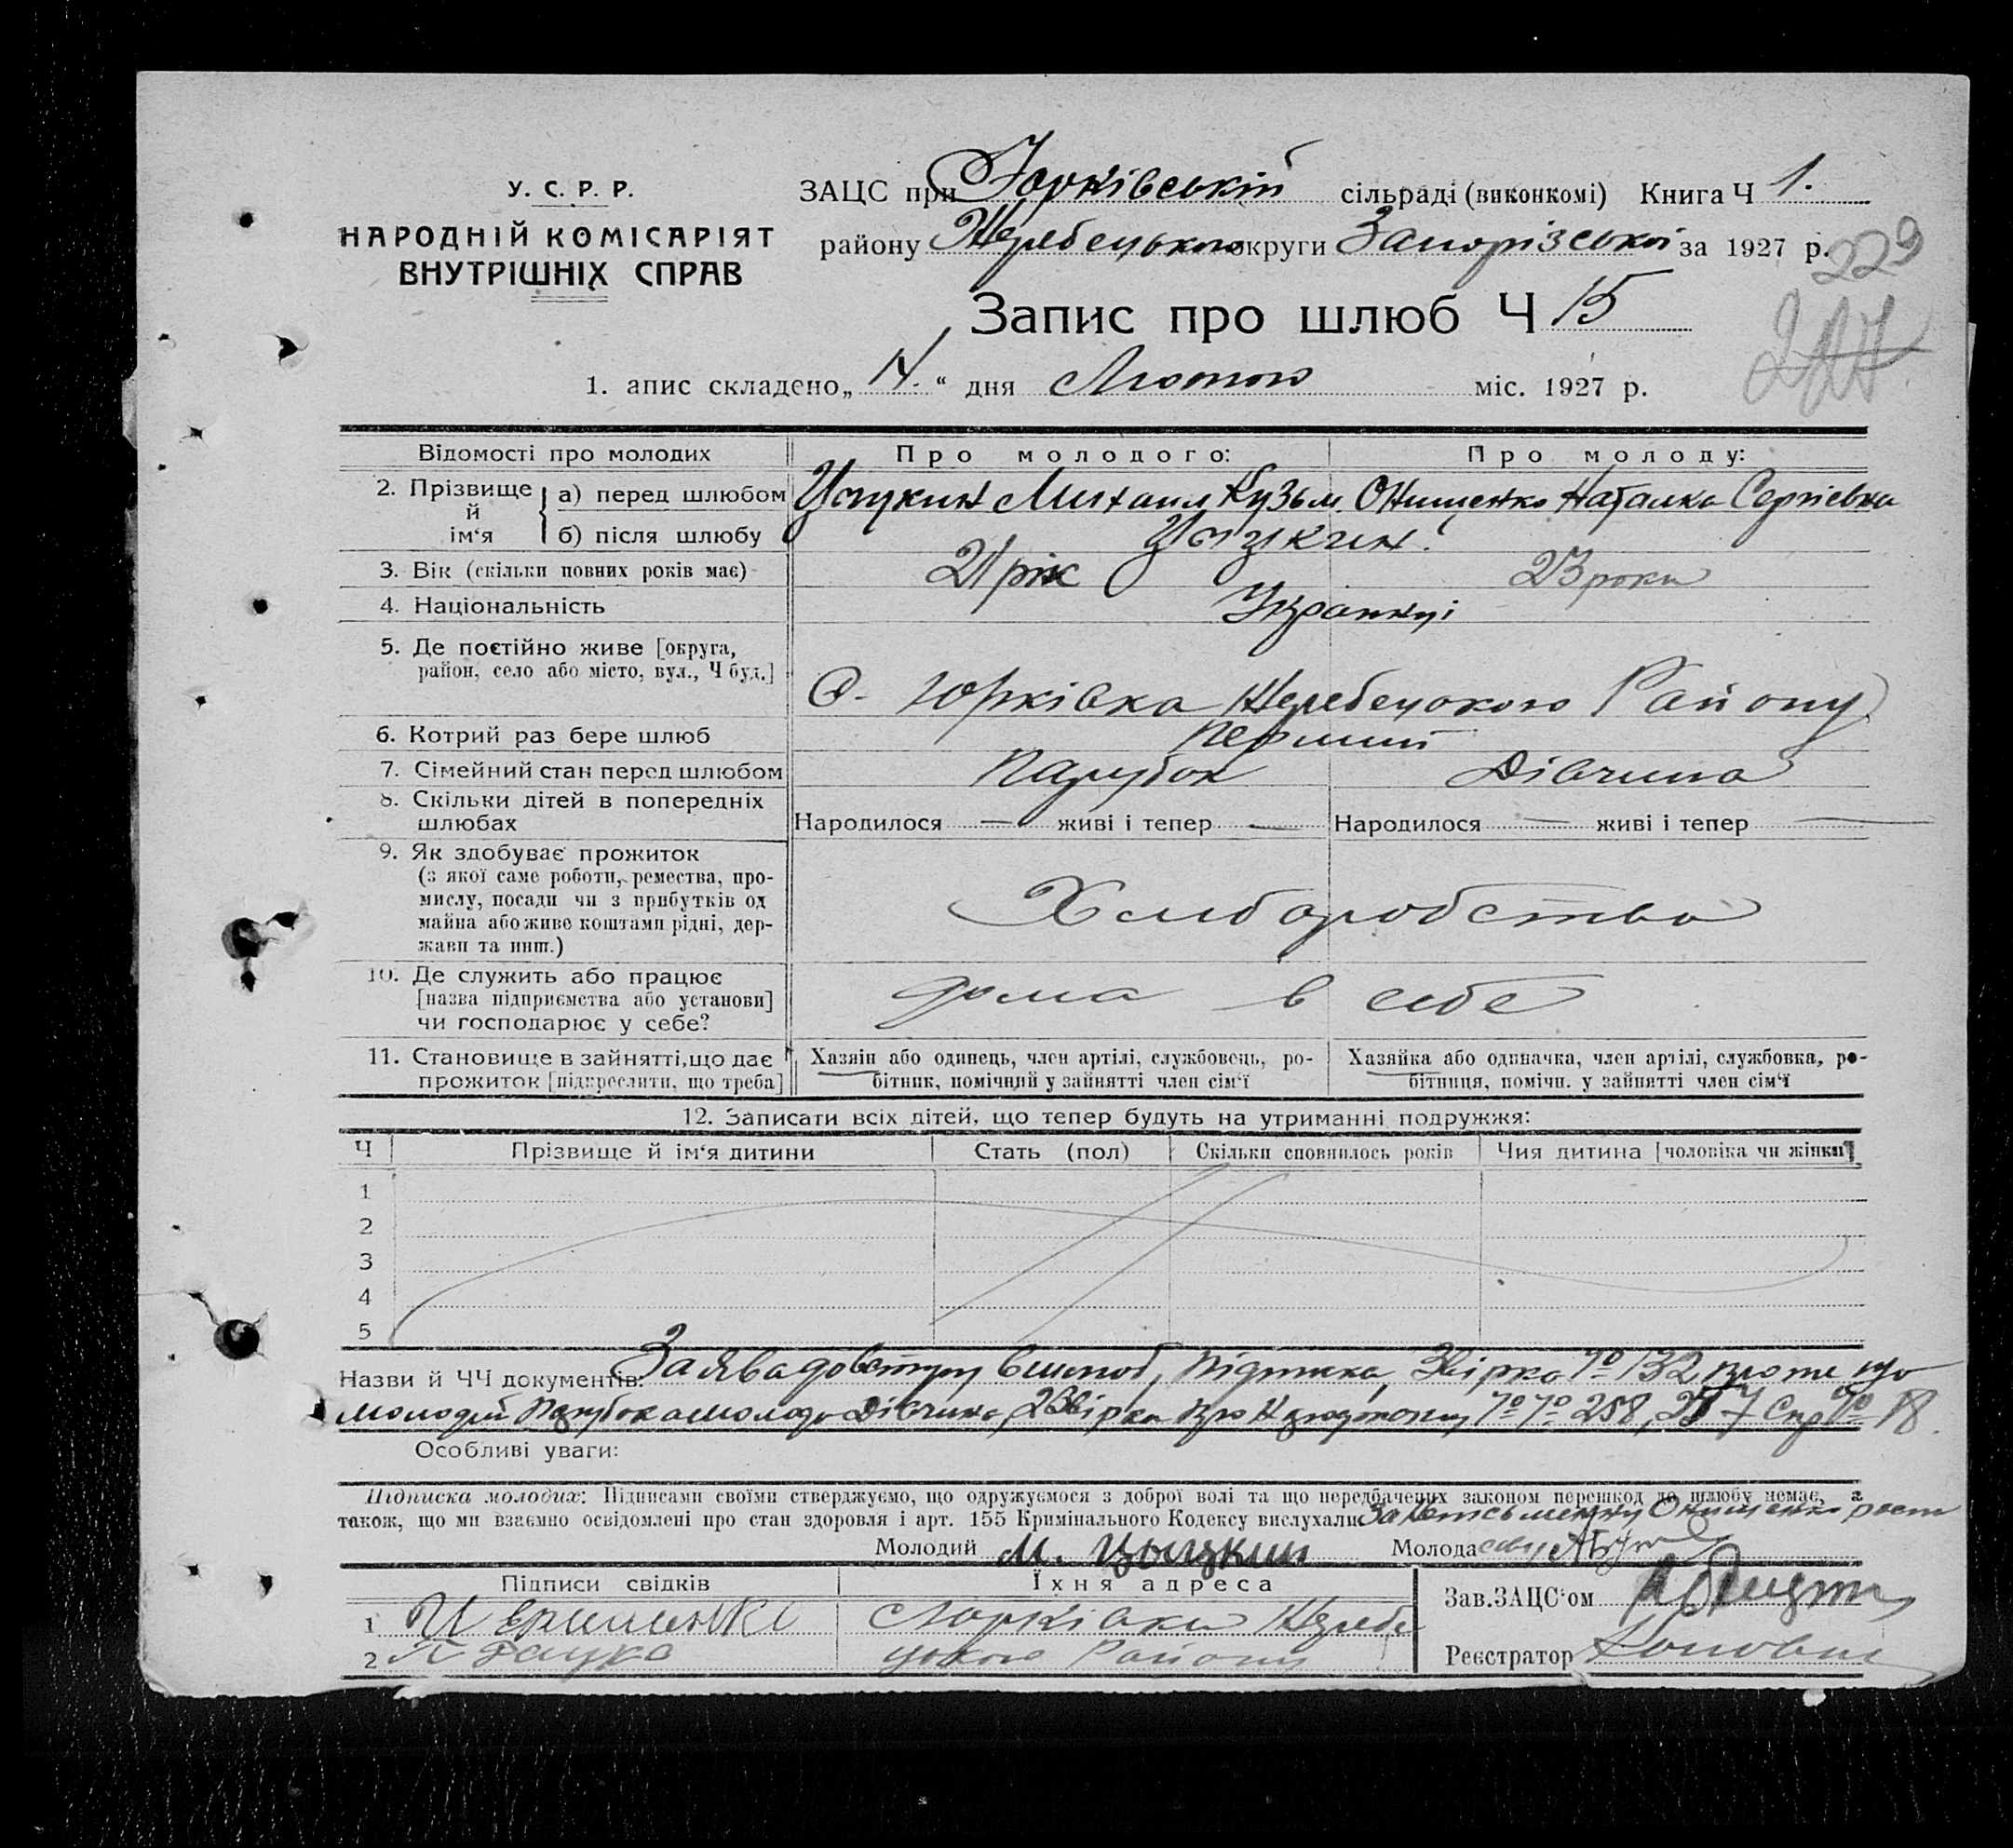 У. С. Р. Р.
НАРОДНІЙ КОМІСАРІЯТ
ВНУТРІШНІХ СПРАВ
ЗАЦС при Юрківській сільраді (виконкомі) Книга Ч 1.
району Жеребецького округи Запорізської за 1927 р.
229
Запис про шлюб Ч 15
1. апис складено „14.“ дня Лютого міс. 1927 р.
Відомості про молодих Про молодого: Про молоду:
2. Прізвище й ім‘я а) перед шлюбом Цыцкин Михаил Кузьм. Онищенко Наталка Сергіевна
б) після шлюбу Цыцкин.
3. Вік (скільки повних років має) 21 рік 23 роки
4. Національність Українці
5. Де постійно живе [округа,
район, село або місто, вул., Ч буд.]
С. Юрківка Жеребецького Району
6. Котрий раз бере шлюб перший
7. Сімейний стан перед шлюбом Парубок Дівчина
8. Скільки дітей в попередніх
шлюбах Народилося — живі і тепер — Народилося — живі і тепер —
9. Як здобуває прожиток
(з якої саме роботи, ремества, про-
мислу, посади чи з прибутків од
майна або живе коштами рідні, дер-
жави та инш.)
Хлиборобство
10. Де служить або працює
[назва підприємства або установи]
чи господарює у себе?
дома в себе
11. Становище в зайнятті, що дає
прожиток [підкреслити, що треба]
Хазяін або одинець, член артілі, службовець, ро-
бітник, помічний у зайнятті член сім‘ї
Хазяйка або одиначка, член артілі, службовка, ро-
бітниця, помічн. у зайнятті член сім‘ї
12. Записати всіх дітей, що тепер будуть на утриманні подружжя:
Ч Прізвище й ім‘я дитини Стать (пол) Скільки сповнилось років Чия дитина [чоловіка чи жінки]
1
2
3
4
5
Назви й ЧЧ документів: Заява до вступу в шлюб, підписка, Звірка № 132 про те що
молодий Парубок а молода Дівчина, 2 Звірки про №№ 258, 257 № 18.
Особливі уваги:
Підписка молодих: Підписами своїми стверджуємо, що одружуємося з доброї волі та що передбачених законом перешкод до шлюбу немає, а
також, що ми взаємно освідомлені про стан здоровля і арт. 155 Кримінального Кодексу вислухали Онищенко
Молодий М. Цыцкин Молода
Підписи свідків Їхня адреса
Зав. ЗАЦС‘ом
1 Юрківки Жеребе
2 цького Району
Реєстратор